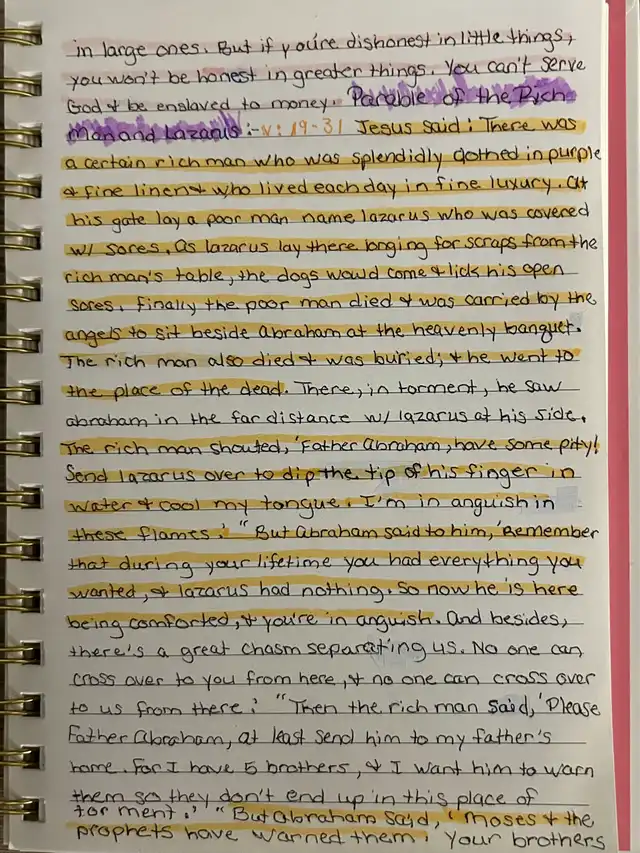 in large ones. But if you're dishonest in little things,
you won't be honest in greater things. You can't serve
God & be enslaved to money. Parable of the Rich
Man and Lazarus:- v: 19-31 Jesus said: There was
a certain rich man who was splendidly clothed in purple
& fine linen & who lived each day in fine luxury. At
his gate lay a poor man name lazarus who was covered
w/ sores. As lazarus lay there longing for scraps from the
rich man's table, the dogs would come & lick his open
sores. Finally the poor man died & was carried by the
angels to sit beside Abraham at the heavenly banquet.
The rich man also died & was buried; & he went to
the place of the dead. There, in torment, he saw
abraham in the far distance w/ lazarus at his side.
The rich man shouted, 'Father Abraham, have some pity!
Send lazarus over to dip the tip of his finger in
water & cool my tongue. I'm in anguish in
these flames.' "But Abraham said to him, 'Remember
that during your lifetime you had everything you
wanted, & lazarus had nothing. So now he is here
being comforted, & you're in anguish. And besides,
there's a great chasm separating us. No one can
cross over to you from here, & no one can cross over
to us from there.' "Then the rich man said, 'Please
Father Abraham, at least send him to my father's
home. For I have 5 brothers, & I want him to warn
them so they don't end up in this place of
torment.' "But Abraham said, 'Moses & the
prophets have warned them. Your brothers